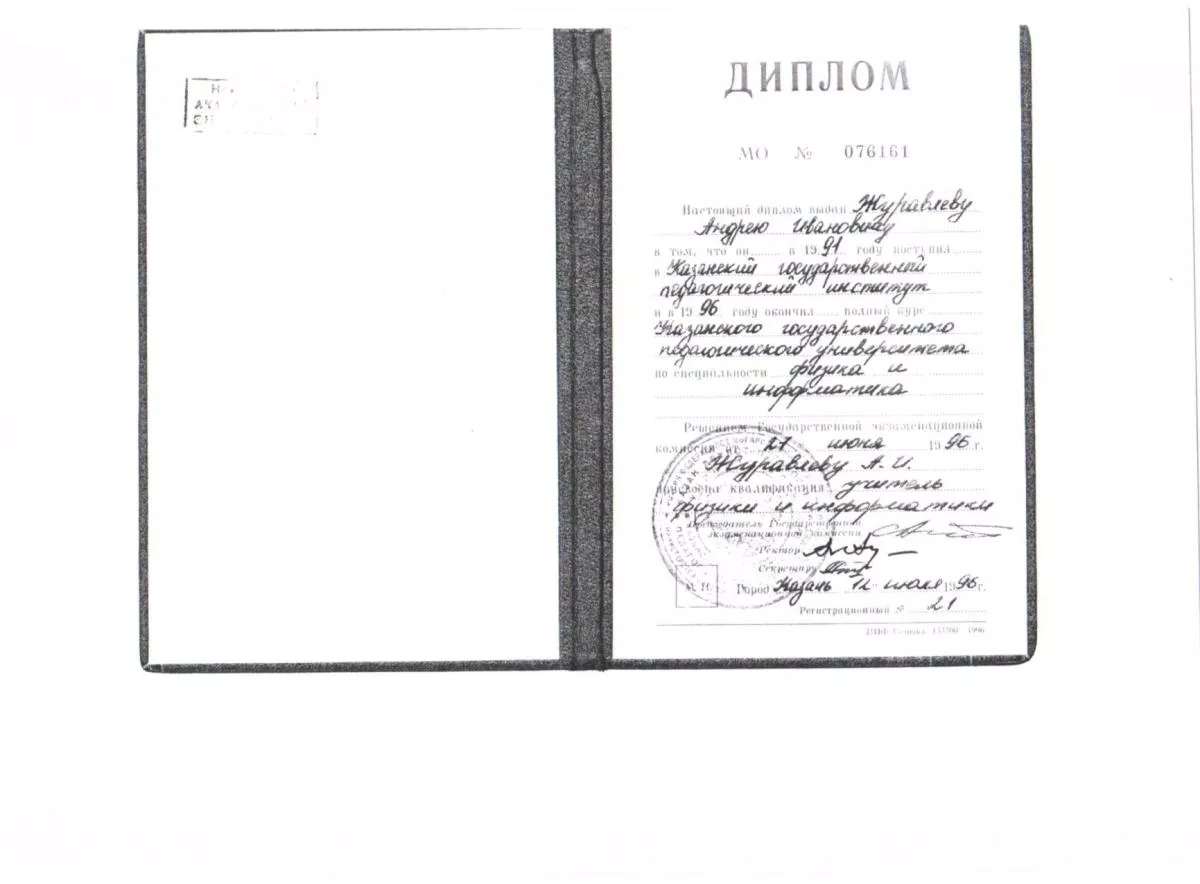 ДИПЛОМ
МО № 076161
Настоящий диплом выдан Журавлеву
Андрею Ивановичу
в том, что он в 1991 году поступил
в Казанский государственный
педагогический институт
и в 1996 году окончил полный курс
Казанского государственного
педагогического университета
по специальности физика и
информатика
Решением Государственной экзаменационной
комиссии от 27 июня 1996 г.
Журавлеву А. И.
присвоена квалификация учитель
физики и информатики
Председатель Государственной
экзаменационной комиссии
Ректор
Секретарь
М. П. Город Казань 12 июля 1996 г.
Регистрационный № 21